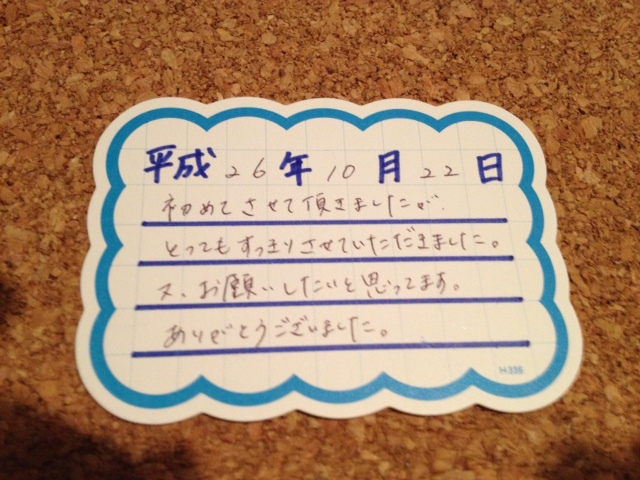 平成26年10月22日
初めてさせて頂きましたが、
とってもすっきりさせていただきました。
又、お願いしたいと思ってます。
ありがとうございました。
H-336